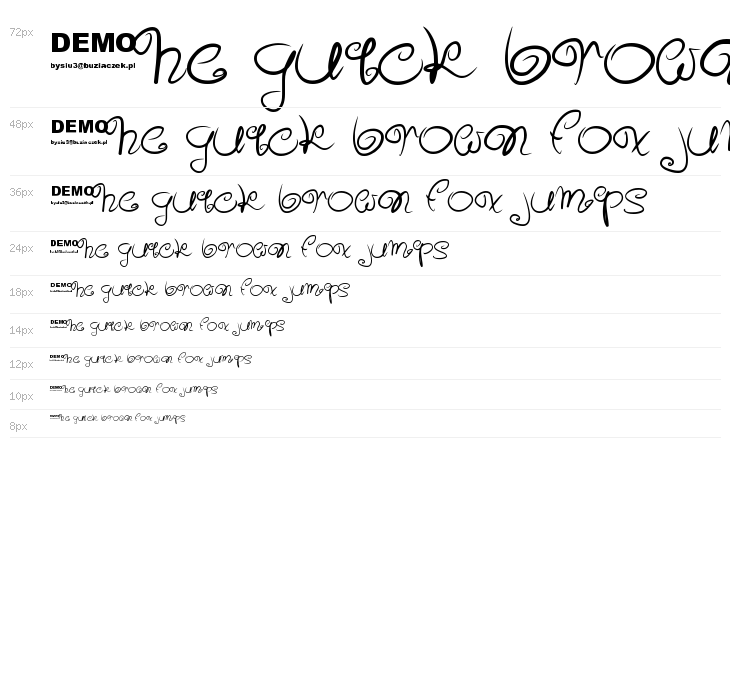 72px DEMO bysiu3@buziaczek.pl he quick brown
48px DEMO bysiu3@buziaczek.pl he quick brown fox jum
36px DEMO bysiu3@buziaczek.pl he quick brown fox jumps
24px DEMO he quick brown fox jumps
18px DEMO he quick brown fox jumps
14px DEMO he quick brown fox jumps
12px DEMO he quick brown fox jumps
10px DEMO he quick brown fox jumps
8px he quick brown fox jumps